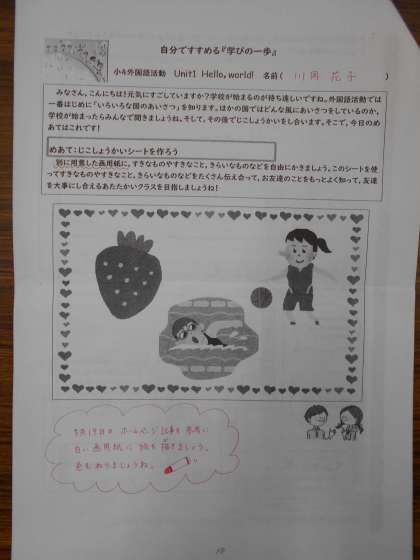 自分ですすめる『学びの一歩』
小4外国語活動　Unit1 Hello, world!　名前（　川岡 花子　）
みなさん、こんにちは！元気にすごしていますか？学校が始まるのが待ち遠しいですね。外国語活動では
一番はじめに「いろいろな国のあいさつ」を知ります。ほかの国ではどんな風にあいさつをしているのか、
学校が始まったらみんなで聞きましょうね。そして、その後でじこしょうかいをし合います。そこで、今日のめ
あてはこれです！
めあて：じこしょうかいシートを作ろう
別に用意した画用紙に、すきなものやすきなこと、きらいなものなどを自由にかきましょう。このシートを使
ってすきなものやすきなこと、きらいなものなどをたくさん伝え合って、お友達のことをもっとよく知って、友達
を大事にし合えるあたたかいクラスを目指しましょうね！
5月19日の ホームページ記事を参考に
白い画用紙に 絵を描きましょう。
色もぬりましょうね。